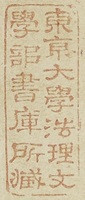 東京大學法理文
學部書庫所藏